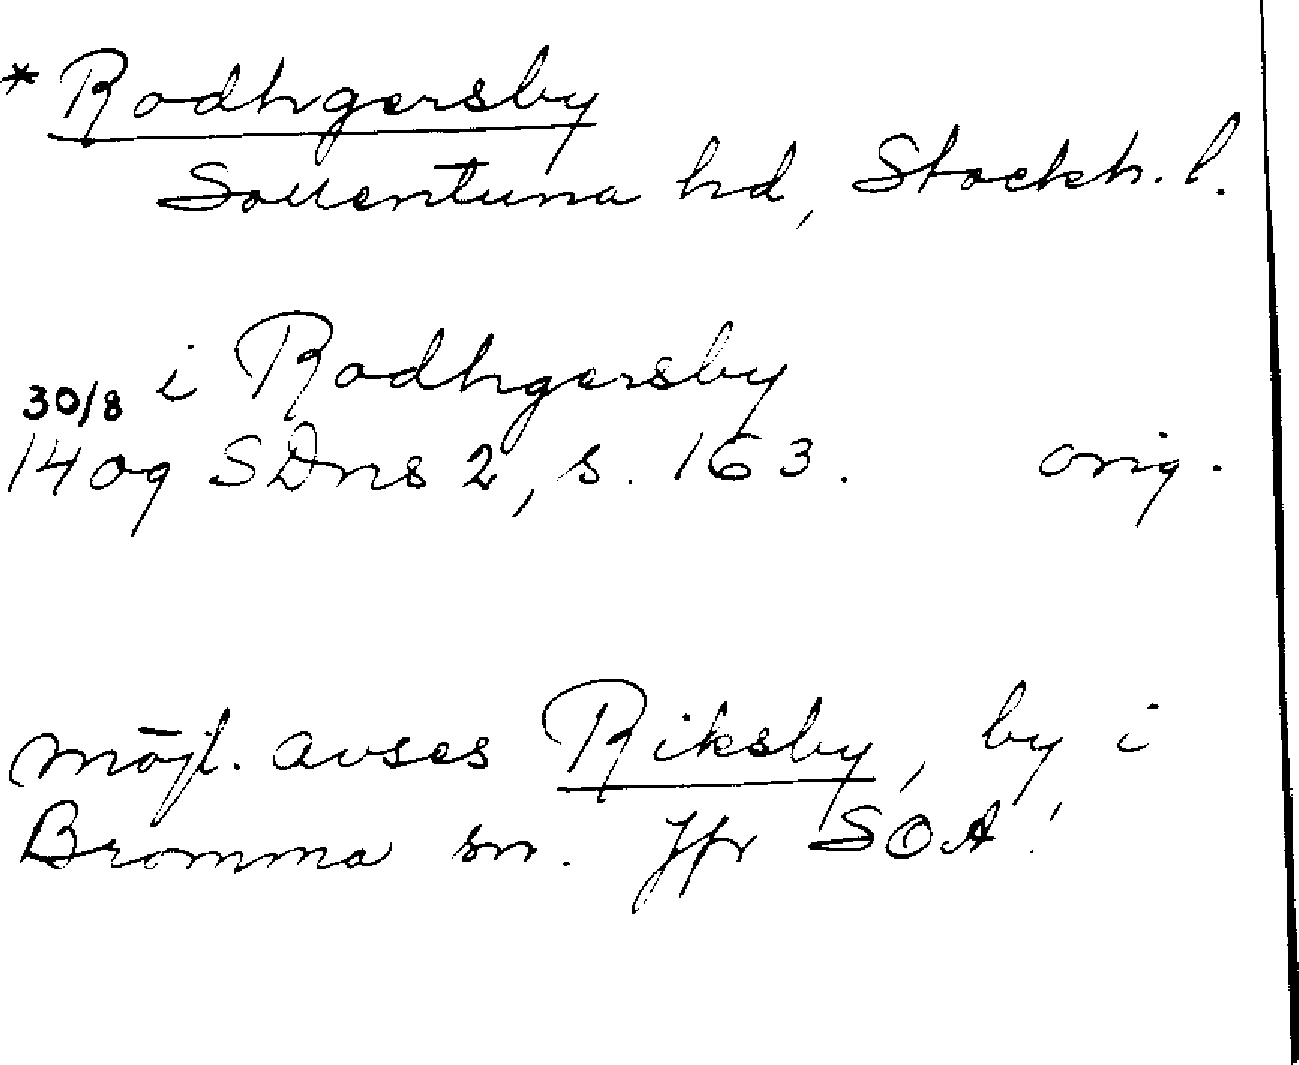 * Rodhgersby
Sollentuna hd, Stockh. l.
30/8 i Rodhgersby
1409 SDns 2, s. 163. orig.
möjl. avses Riksby, by i
Bromma sn. Jfr SOA!